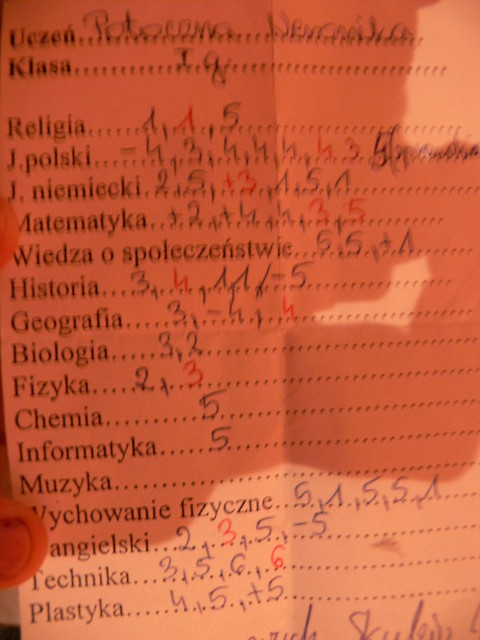 Uczeń Potoczna Weronika
Klasa I g
Religia 1, 1, 5
J.polski -4, 3, 4, 4, 4, 4 3
J. niemiecki 2, 5, +3, 1, 5, 1
Matematyka +2, +4, 4, 3, 5
Wiedza o społeczeństwie 5, 5, +1
Historia 3, 4, 1 1, -5
Geografia 3, -4, 4
Biologia 3, 2
Fizyka 2, 3
Chemia 5
Informatyka 5
Muzyka
Wychowanie fizyczne 5, 1, 5, 5, 1
angielski 2, 3, 5, -5
Technika 3, 5, 6, 6
Plastyka 4, 5, +5